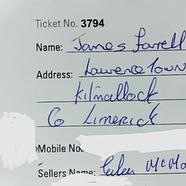 Ticket No. 3794
Name: James Farrell
Address: Laurencetown
Kilmallock
Co Limerick
Mobile No
Sellers Name: Helen McMa